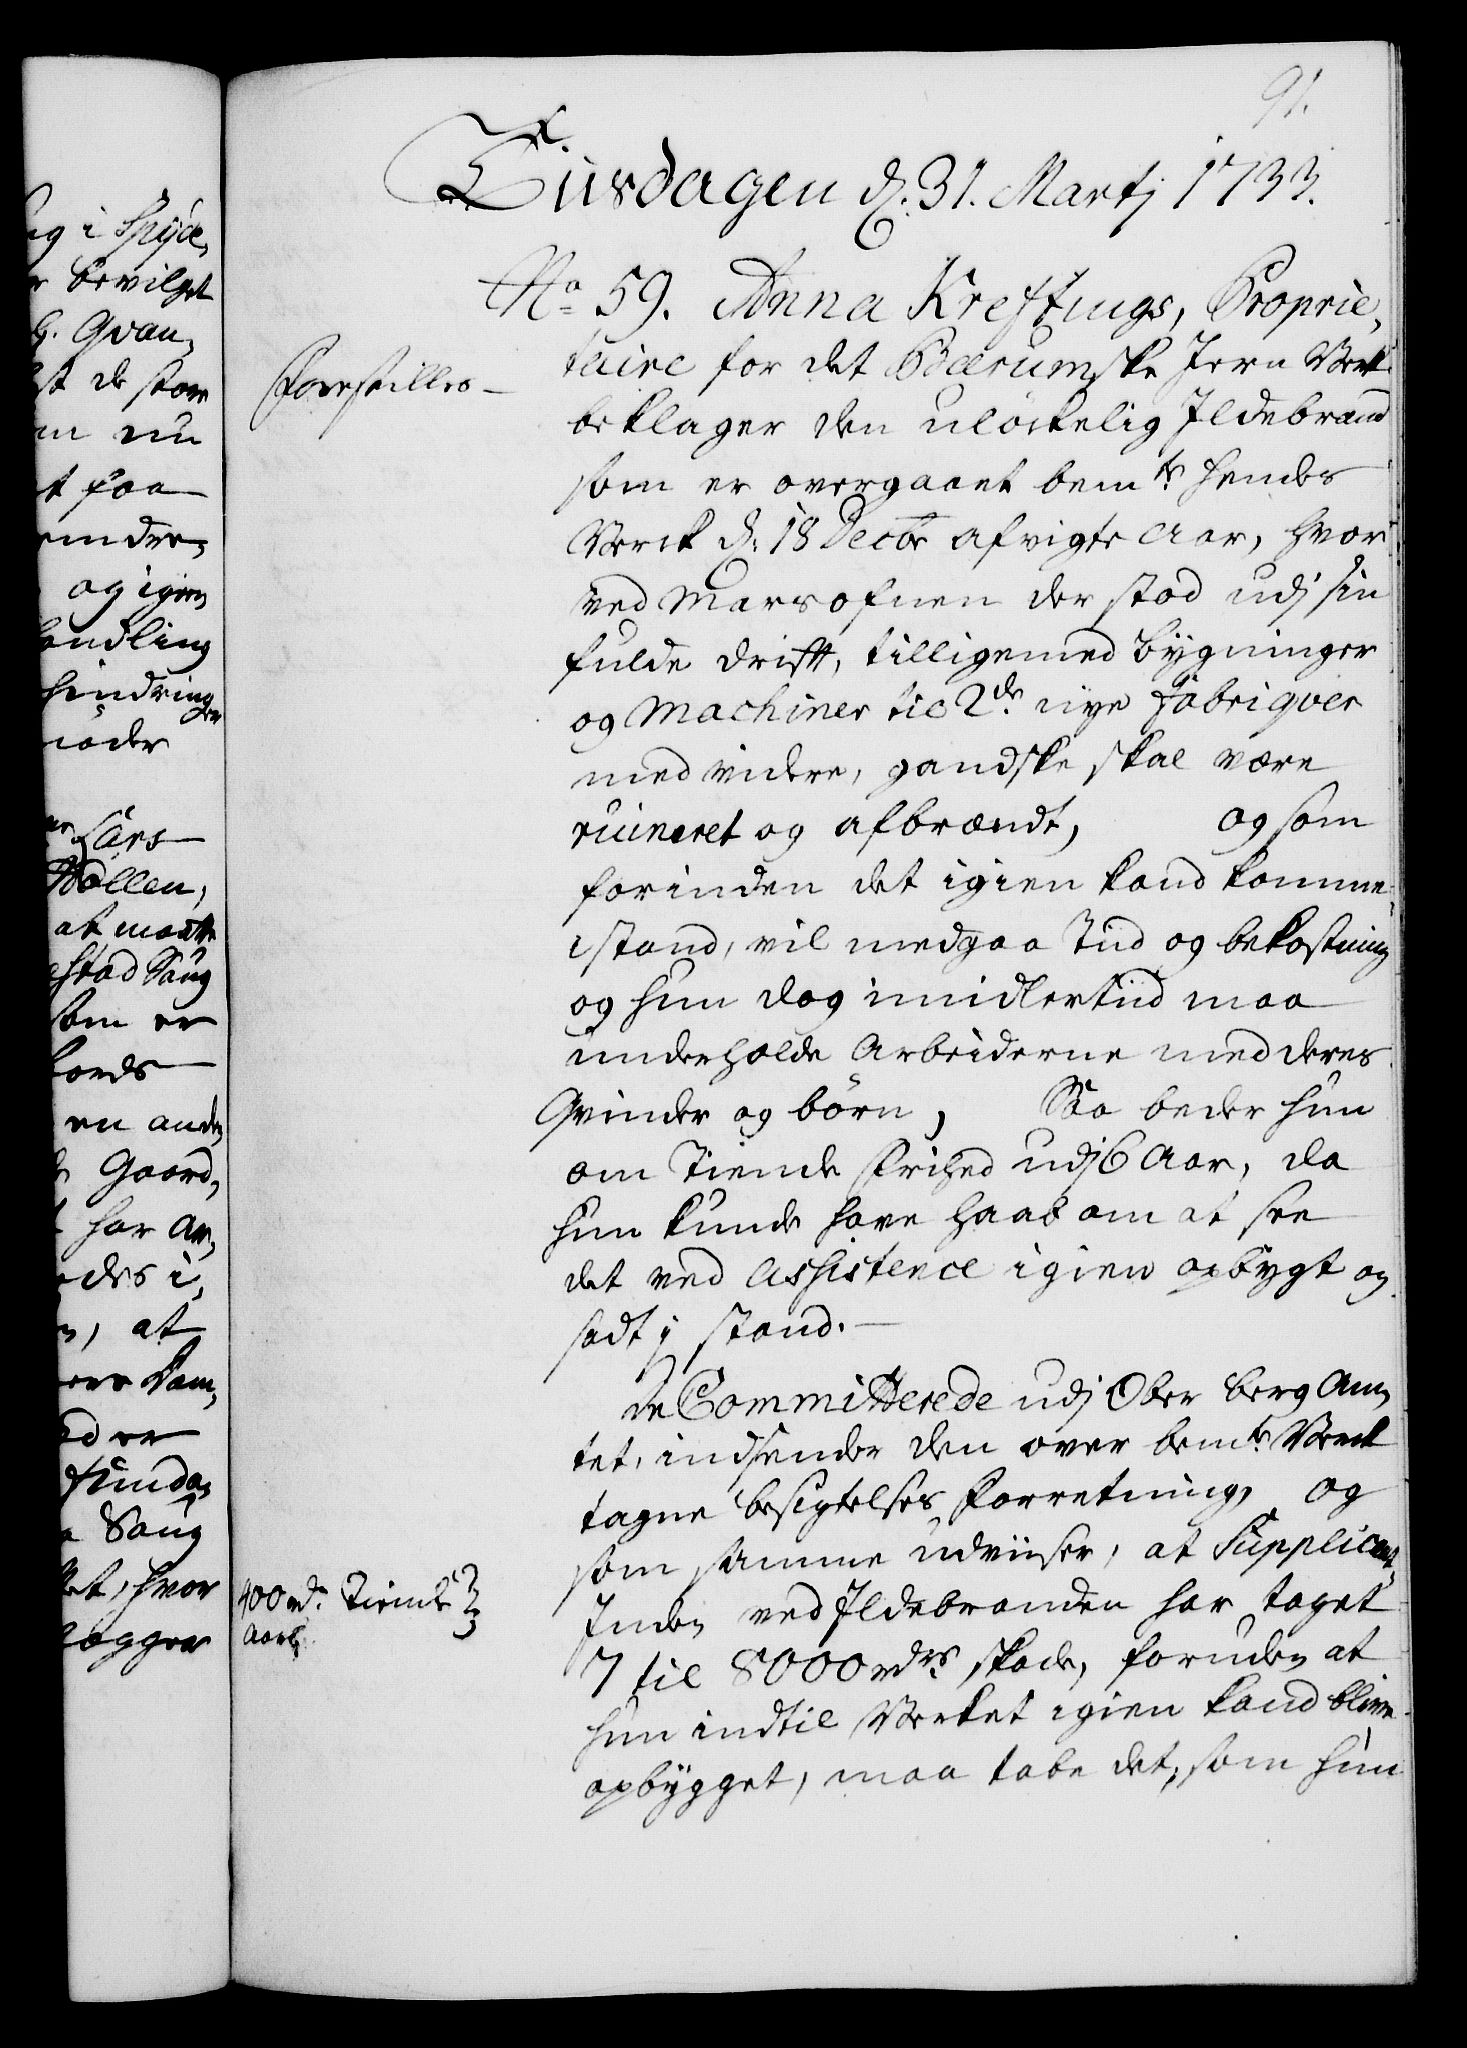 91.
Tiisdagen d. 31. Martj 1733.
No 59. Anna Kreftings, Proprie,
taire for det Bærumske Jern Werk
beklager den ulöckelig Ildebrand
som er overgaaet bemte hendes
Werck d. 18 Decbr afvigte Aar, hvor
ved Marsofnen der stod udj sin
fulde drift, tilligemed bygninger
og Machiner til 2de nye Fabriqver
med videre, gandske skal være
ruineret og afbrændt, og som
forinden det igien kand komme
i stand, vil medgaa Tiid og bekostning
og hun dog imidlertiid maa
underholde Arbeiderne med deres
Qvinder og börn, Saa beder hun
om Tiende Frihed udj 6 Aar, da
hun kunde have haab om at see
det ved Assistence igien opbygt og
sadt j stand.
De Committerede udj Ober Berg Am,
tet, indsender den over bemte Werck
tagne besigtelses Forretning, og
som samme udviiser, at Supplicant,
Inden ved Ildebranden har taget
7 til 8000 rdrs skade, foruden at
hun indtil Werket igien kand blive
opbygget, maa tabe det, som hun
Forestilles
400 rd. Tiende
Aarl.
ng i Spÿde,
r bevilget
G. Qvan,
st de store
m nu
t paa
mdre,
og igien
handling
hindring
er
möder
Lars
Möllen,
at maatte
stad Saug
som er
fords
en anden
Gaard,
har an,
edes i,
n, at
ers Kam,
ed er
funda,
Saug
et, hvor
logger